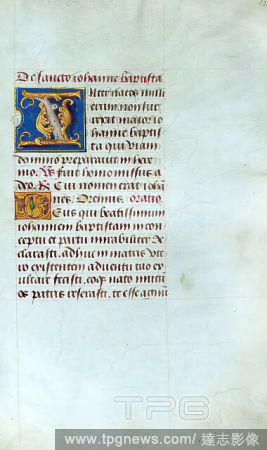 De sancto iohanne baptista
Inter natos muli
erum non sur
rexit maior io
hanne baptis
ta qui viam
domino preparavit in here
mo. Vs fuit homo missus a
deo. R Cui nomen erat iohan
nes. Oremus. oratio.
Deus qui beatissimum
iohannem baptistam in con
ceptu et partu mirabiliter de
clarasti. adhuc in matris ute
ro existentem adventu tuo ex
ultare fecisti. eiusq nativi
os patris reserasti. te esse agnū
TPG
www.tpgnews.com / 達志影像